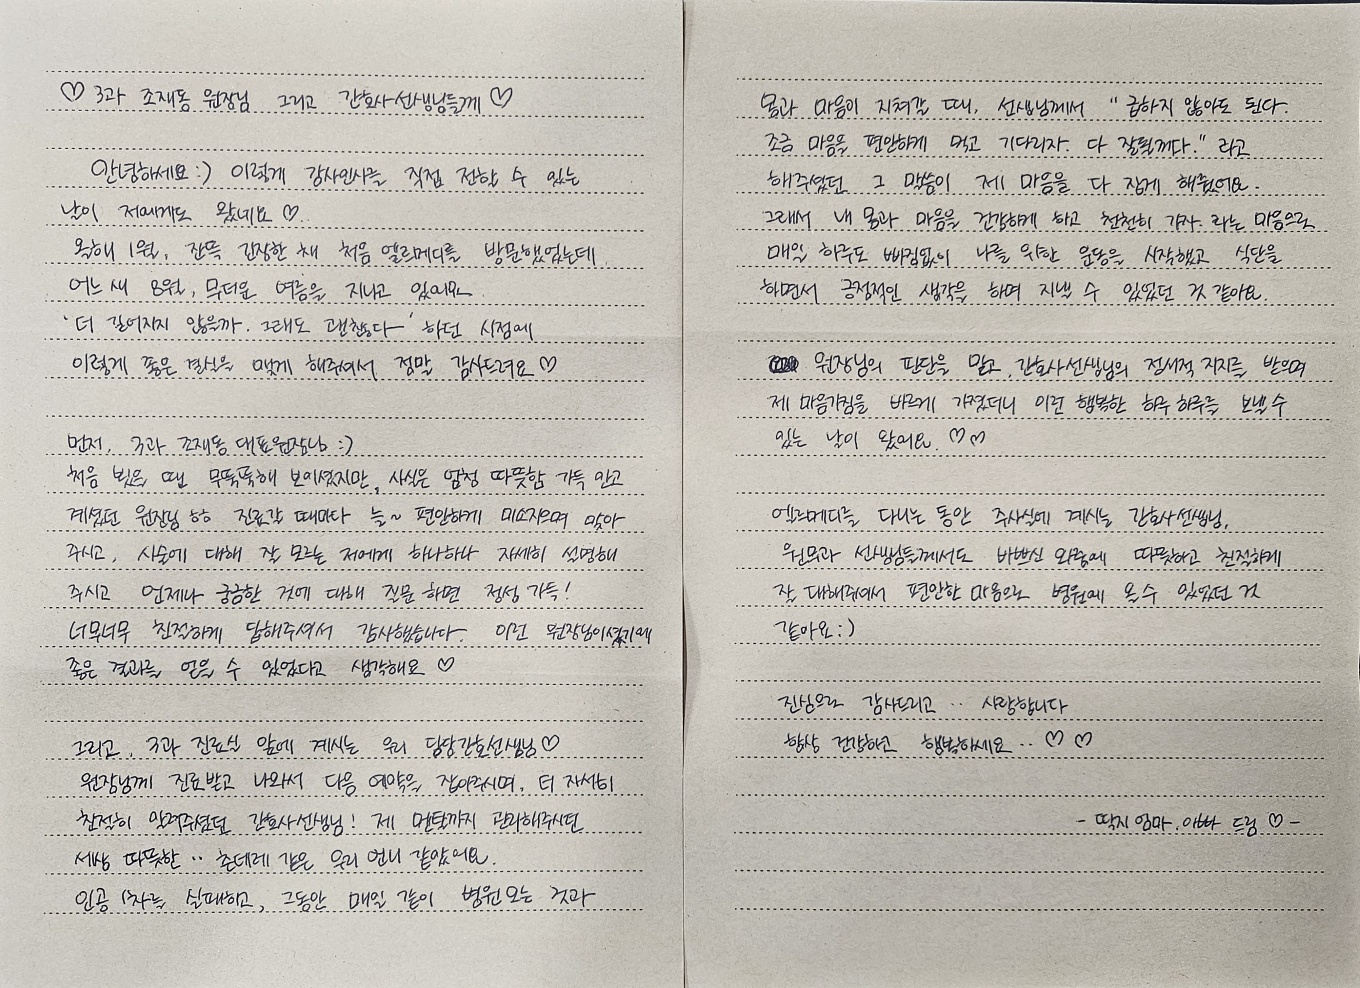 ♡ 3과 조재동 원장님 그리고 간호사선생님들께 ♡
안녕하세요:) 이렇게 감사인사를 직접 전할 수 있는
날이 저에게도 왔네요 ♡..
올해 1월, 잔뜩 긴장한 채 처음 엘르메디를 방문했었는데
어느 새 8월, 무더운 여름을 지나고 있어요.
'더 길어지지 않을까. 그래도 괜찮다-' 하던 시점에
이렇게 좋은 결실을 맺게 해주셔서 정말 감사드려요 ♡
먼저, 3과 조재동 대표원장님 :)
처음 뵀을 땐 무뚝뚝해 보이셨지만, 사실은 엄청 따뜻함 가득 안고
계셨던 원장님 ㅎㅎ 진료갈 때마다 늘~ 편안하게 미소지으며 맞아
주시고, 시술에 대해 잘 모르는 저에게 하나하나 자세히 설명해
주시고 언제나 궁금한 것에 대해 질문 하면 정성 가득!
너무너무 친절하게 답해주셔서 감사했습니다. 이런 원장님이셨기에
좋은 결과를 얻을 수 있었다고 생각해요 ♡
그리고, 3과 진료실 앞에 계시는 우리 담당간호선생님♡
원장님께 진료받고 나와서 다음 예약을 잡아주시며, 더 자세히
친절히 알려주셨던 간호사선생님! 제 멘탈까지 관리해주시던
세상 따뜻한 ·· 츤데레 같은 우리 언니 같았어요.
인공 1차를 실패하고, 그동안 매일 같이 병원 오는 것과
몸과 마음이 지쳐갈 때, 선생님께서 "급하지 않아도 된다.
조금 마음을 편안하게 먹고 기다리자. 다 잘될꺼다." 라고
해주셨던 그 말씀이 제 마음을 다 잡게 해줬어요.
그래서 내 몸과 마음을 건강하게 하고 천천히 가자. 라는 마음으로
매일 하루도 빠짐없이 나를 위한 운동을 시작했고 식단을
하면서 긍정적인 생각을 하며 지낼 수 있었던 것 같아요.
원장님의 판단을 믿고, 간호사선생님의 정서적 지지를 받으며
제 마음가짐을 바르게 가졌더니 이런 행복한 하루 하루를 보낼 수
있는 날이 왔어요. ♡♡
엘르메디를 다니는 동안 주사실에 계시는 간호사선생님,
원무과 선생님들께서도 바쁘신 와중에 따뜻하고 친절하게
잘 대해주셔서 편안한 마음으로 병원에 올 수 있었던 것
같아요:)
진심으로 감사드리고 ·· 사랑합니다
항상 건강하고 행복하세요 ·· ♡ ♡
- 딱지 엄마. 아빠 드림 ♡ -